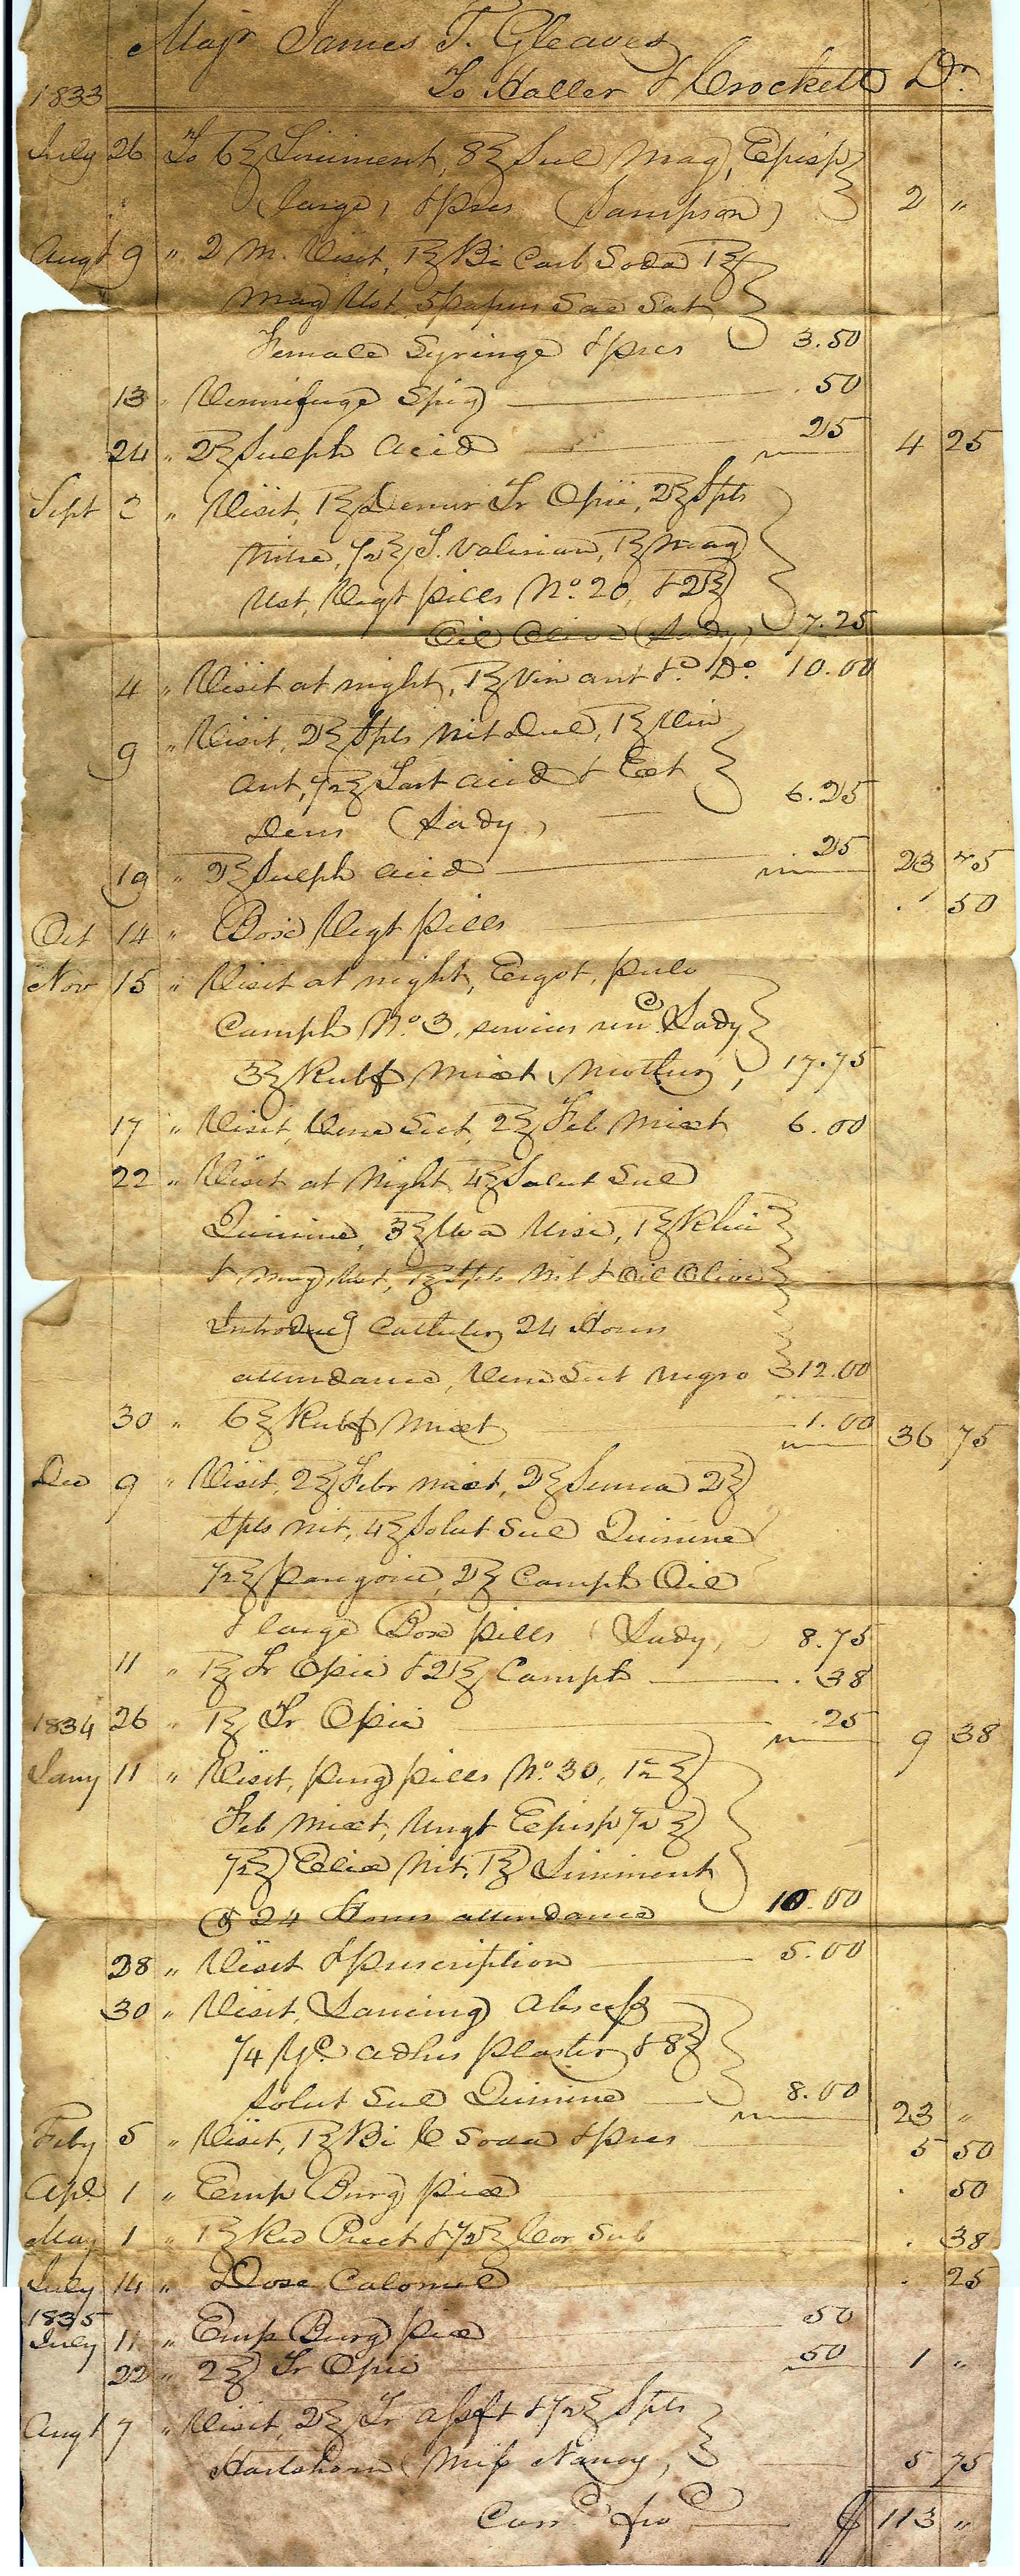 Majr James T. Gleaves
1833 To Haller & Crockett Dr.
July 26 To 6℥ Liniment, 8℥ Sul Mag, Episp
" (large) & pres (Sampson) 2 "
Augt 9 " 2 M. Visit, 1℥ Bi Carb Soda 1℥
Mag Ust, 5 papers Sac Sat
Female Syringe & pres 3.50
13 " Vermifuge Spig 50
24 " 2℥ Sulph Acid 25 4 25
Sept 2 " Visit, 1℥ Tr Opii, 2℥ Spts
Nitre, 1/2℥ T. Valerian, 1℥ Mag
Ust, Vegt pills No. 20, & 2℥
Oil Olive (Lady) 7.25
4 " Visit at night, 1℥ Vin ant & Do. 10.00
9 " Visit, 2℥ Spts Nit Dul, 1℥ Vin
Ant, 1/2℥ Tart acid & Ext
Dens (Lady) 6.25
19 " 2℥ Sulph acid 25 23 75
Oct 14 " Box Vegt pills 50
Nov 15 " Visit at night, Ergot, pulv
Camph No. 3, services rend Lady
3℥ Rubf Mixt (Mother) 17.75
17 " Visit, Vene Sect, 2℥ Feb Mixt 6.00
22 " Visit at Night 4℥ Solut Sul
Quinine, 3℥ Uva Ursi, 1℥ Rhei
& Mag Ust, 1℥ Spts Nit & Oil Olive
Introducg Catheter, 24 Hours
attendance, Vene Sect Negro 12.00
30 " 6℥ Rubf Mixt 1.00 36 75
Dec 9 " Visit, 2℥ Febr mixt, 2℥ Senna 2℥
Spts nit, 4℥ Solut Sul Quinine
1/2℥ paregoric, 2℥ Camph Oil
& large Box pills (Lady) 8.75
11 " 1℥ Tr Opii & 2℥ Camph .38
1834 26 " 1℥ Tr Opii 25 9 38
Jany 11 " Visit, purg pills No. 30, 1 1/2℥
Feb Mixt, Ungt Episp 1/2℥
1/2℥ Elix Nit, 1℥ Liniment
& 24 Hours attendance 10.00
28 " Visit & prescription 5.00
30 " Visit, Lancing Abscess
1/4 Yd adhes plaster & 8℥
solut Sul Quinine 8.00 23 "
Feby 5 " Visit, 1℥ Bi C Soda & pres 5 50
Apl 1 " Emp Burg pix . 50
May 1 " 1℥ Red Prect & 1/2℥ Cor Sub . 38
July 14 " Dose Calomel . 25
1835
July 11 " Emp Burg pix 50
22 " 2℥ Tr Opii 50 1 "
Augt 7 " Visit, 2℥ Tr Assft & 1/2℥ Spts
Hartshorn (Miss Nancy) 5 75
Card. for'd $ 113 "